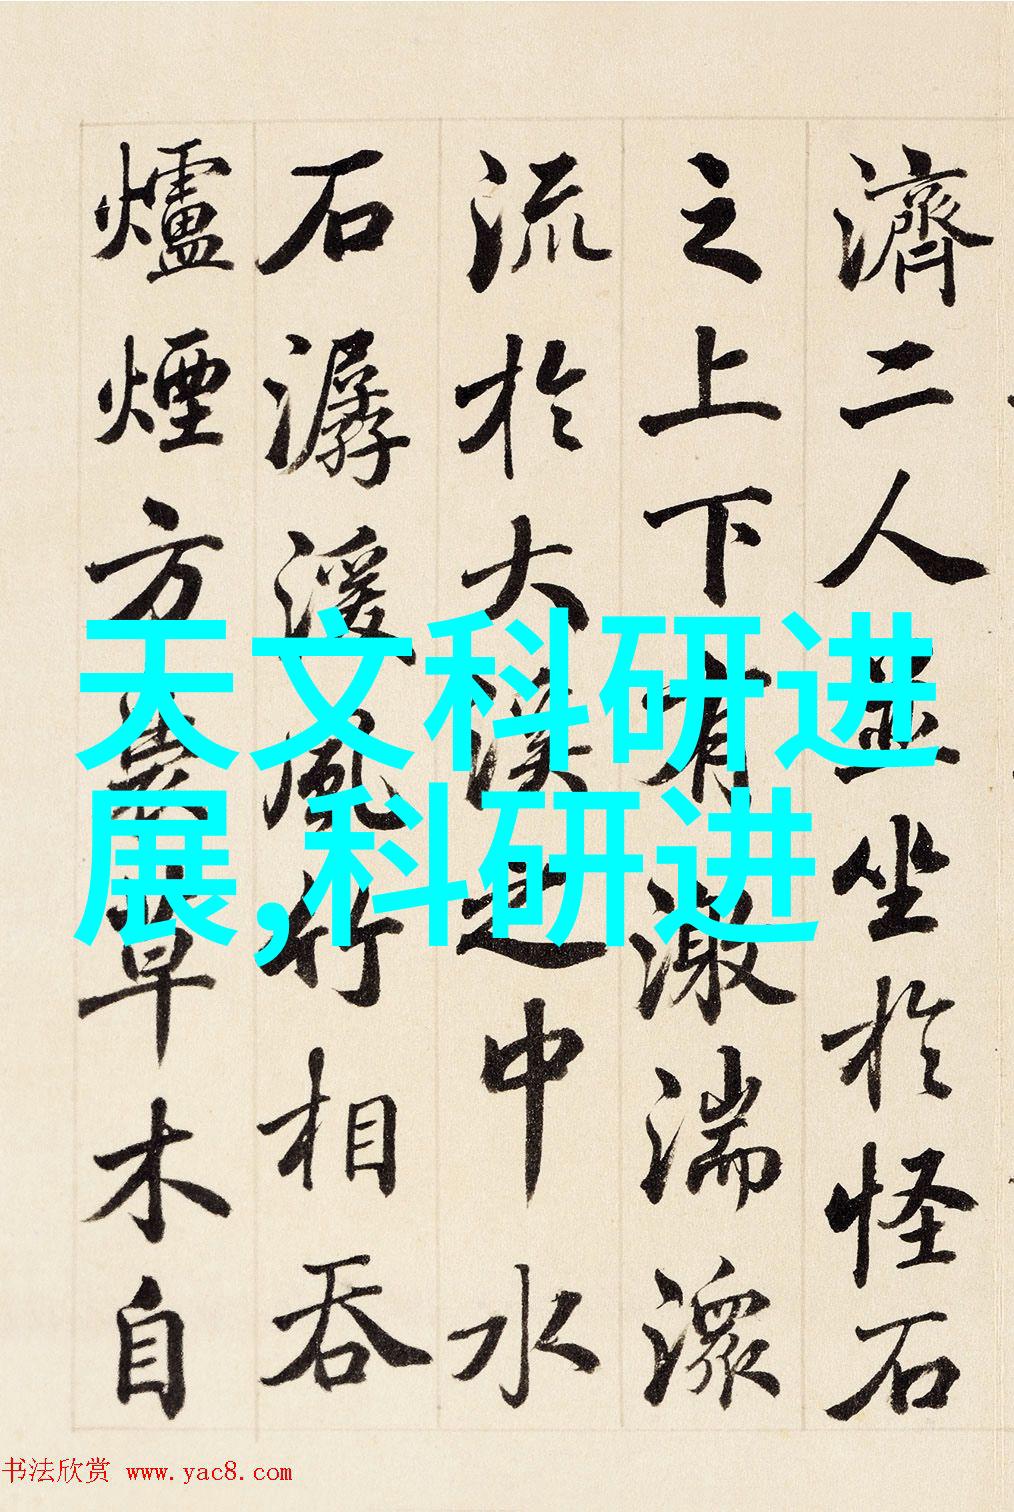 濟二人並坐於怪石
之上下有激湍潨
流於大溪之中水
石潺湲風竹相吞
爐煙方草木自
天文科研进
展,科研进
书法欣赏 www.yac8.com